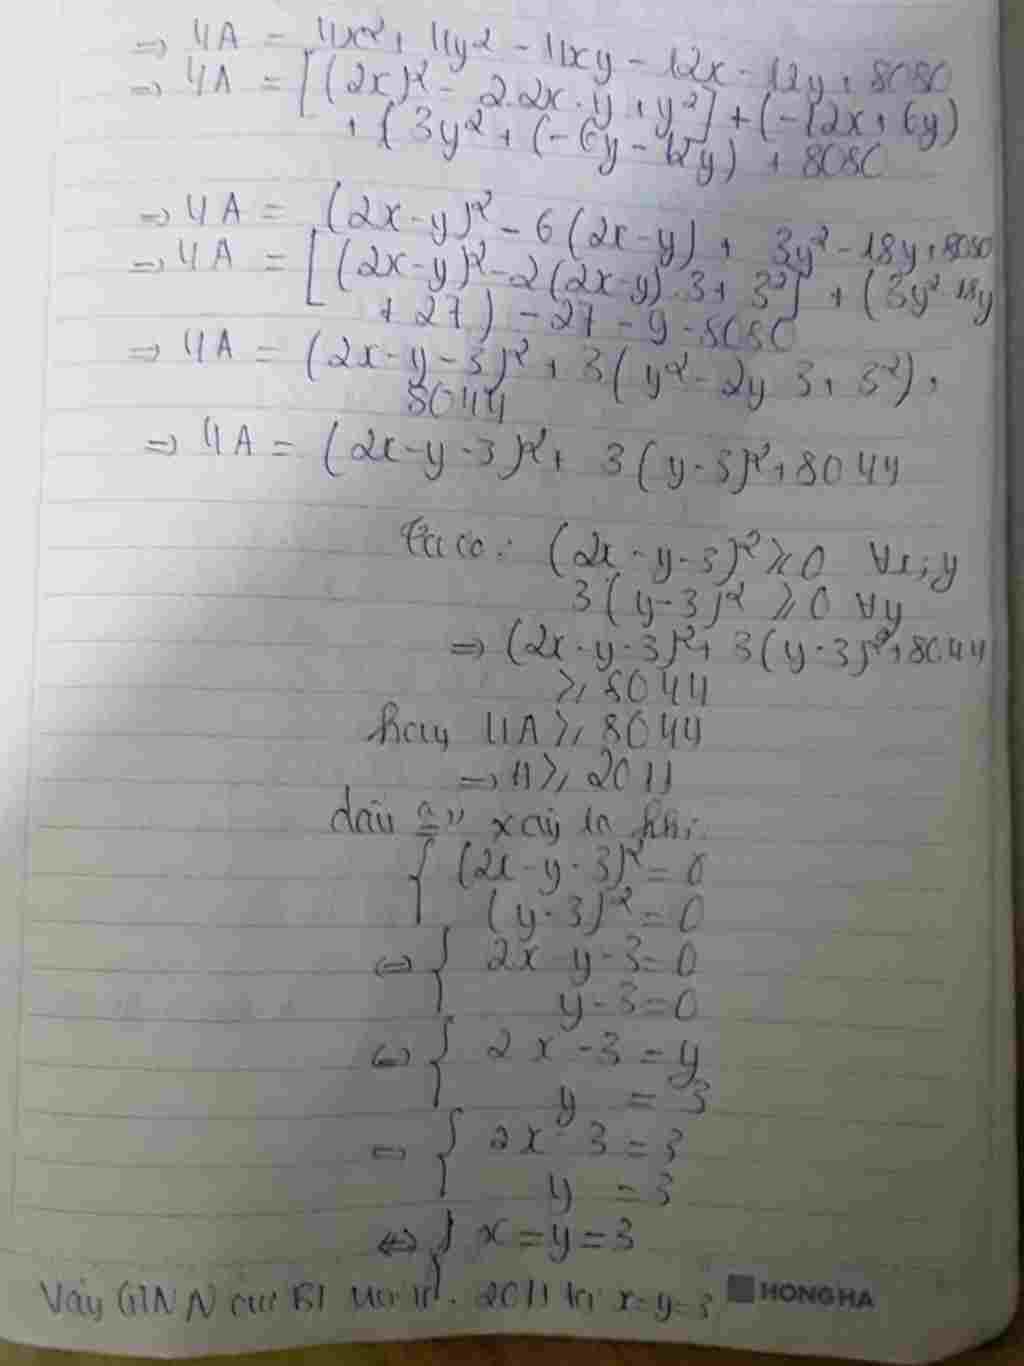 ⇒ 4A = 4x² + 4y² - 4xy - 12x - 12y + 8080
⇒ 4A = [(2x)² - 2.2x.y + y²] + (-12x + 6y)
+ (3y² + (-6y - 12y) + 8080
⇒ 4A = (2x-y)² - 6(2x-y) + 3y² - 18y + 8080
⇒ 4A = [(2x-y)² - 2(2x-y).3 + 3²] + (3y² - 18y
+ 27) - 27 - 9 - 8080
⇒ 4A = (2x-y-3)² + 3(y² - 2y 3 + 3²) +
8044
⇒ 4A = (2x-y-3)² + 3(y-3)² + 8044
Ta có: (2x-y-3)² ≥ 0 ∀x;y
3(y-3)² ≥ 0 ∀y
⇒ (2x-y-3)² + 3(y-3)² + 8044
≥ 8044
hay 4A ≥ 8044
⇒ A ≥ 2011
dấu "=" xảy ra khi:
{ (2x-y-3)² = 0
(y-3)² = 0
⇔ { 2x y-3 = 0
y-3 = 0
⇔ { 2x - 3 = y
y = 3
⇔ { 2x - 3 = 3
y = 3
⇔ { x = y = 3
Vậy GTNN của BT 2011 x = y = 3
HONG HA